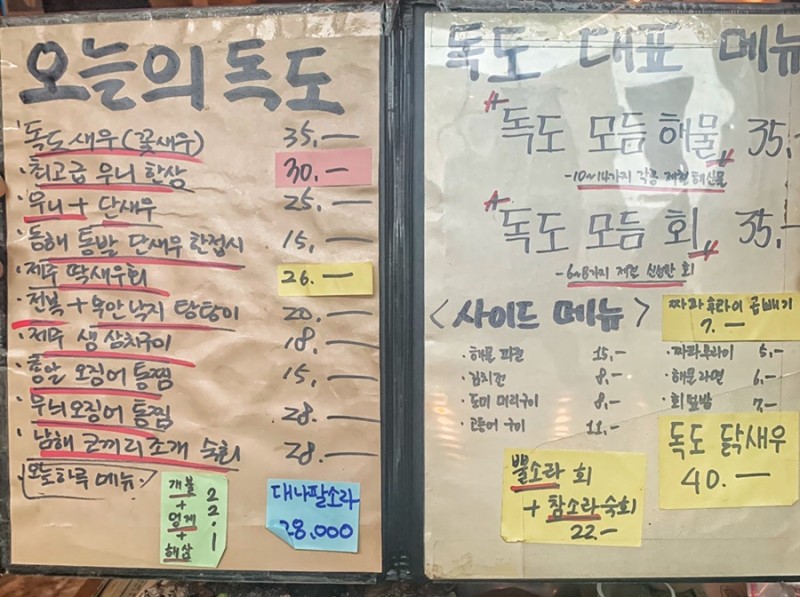 오늘의 독도
· 독도새우(꽃새우) 35.—
· 최고급 우니 한상 30.—
· 우니 + 단새우 25.—
· 동해 통발 단새우 한접시 15.—
· 제주 딱새우회 26.—
· 전복 + 무안낙지 탕탕이 20.—
· 제주 생 삼치구이 18.—
· 통알 오징어 통찜 15.—
· 무늬오징어 통찜 28.—
· 남해 코끼리조개 숙회 28.—
오늘하루 메뉴
개불
+
멍게
+
해삼
22.1
대나팔소라
28,000
독도 대표 메뉴
독도 모듬 해물 35.—
- 10~14가지 각종 제철 해산물
독도 모듬 회 35.—
- 6~8가지 제철 신선한 회
< 사이드 메뉴 >
짜파후라이 곱빼기
7.—
· 해물 파전 15.—
· 김치전 8.—
· 도미 머리구이 8.—
· 고등어 구이 11.—
· 짜파후라이 5.—
· 해물라면 6.—
· 회덮밥 7.—
뿔소라 회
+ 참소라숙회
22.—
독도 닭새우
40.—